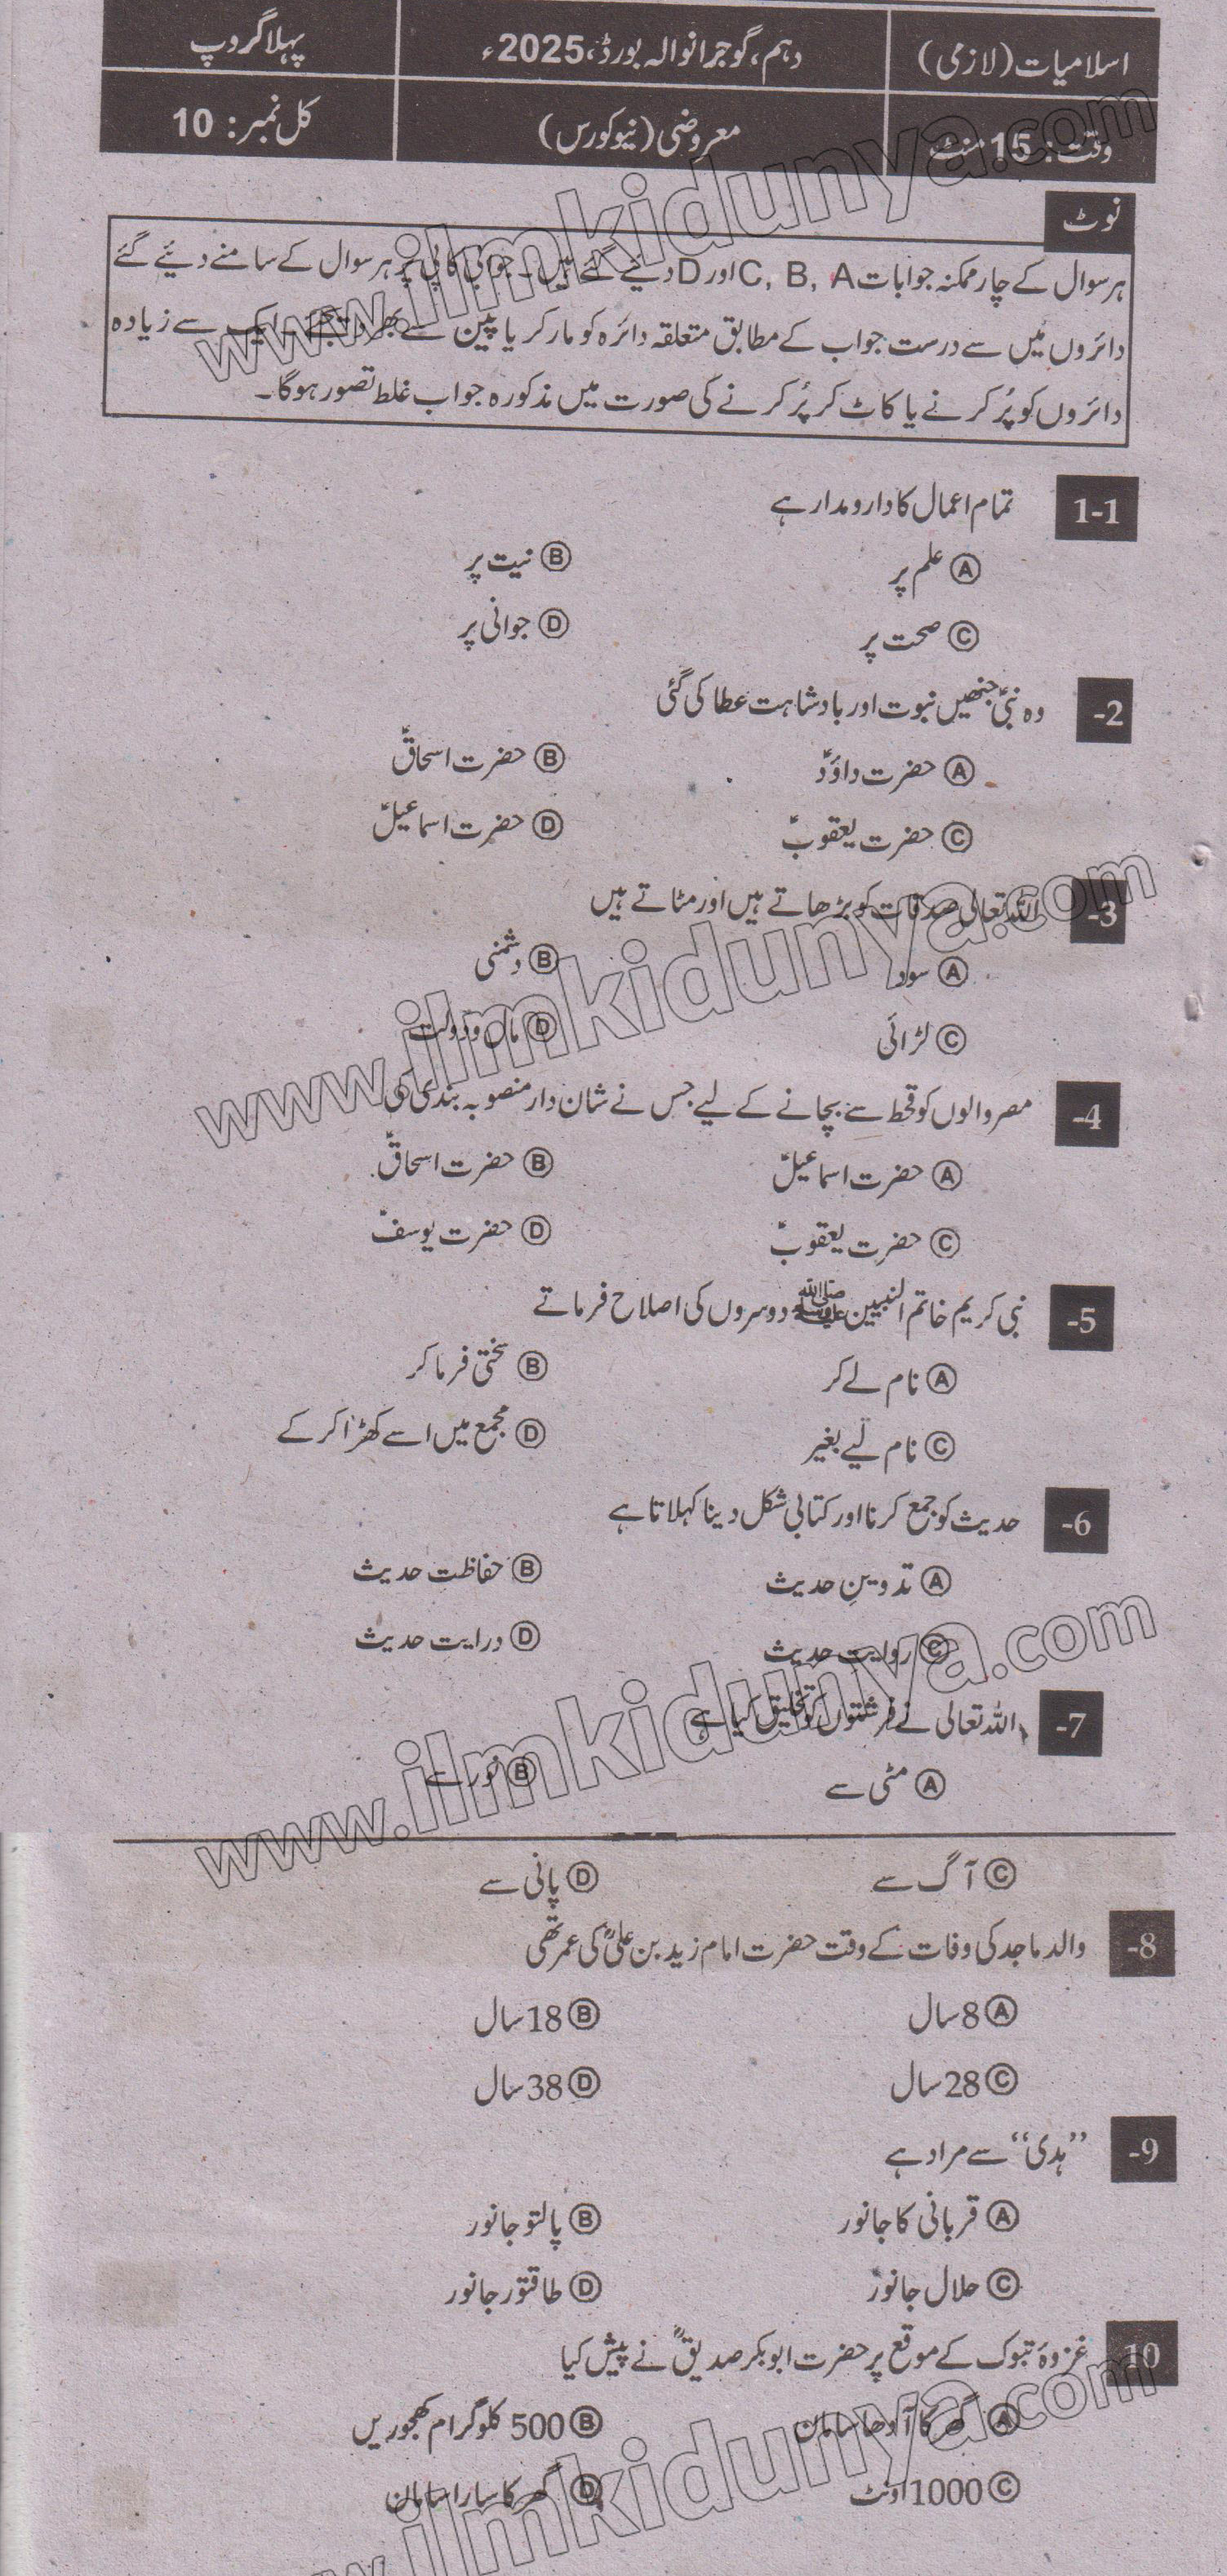 اسلامیات (لازمی) دہم، گوجرانوالہ بورڈ، 2025ء پہلا گروپ
وقت: 15 منٹ معروضی (نیو کورس) کل نمبر: 10
نوٹ
ہر سوال کے چار ممکنہ جوابات C, B, A اور D دیئے گئے ہیں۔ جوابی کاپی پر ہر سوال کے سامنے دیئے گئے
دائروں میں سے درست جواب کے مطابق متعلقہ دائرہ کو مارکر یا پین سے بھر دیجئے۔ ایک سے زیادہ
دائروں کو پُر کرنے یا کاٹ کر پُر کرنے کی صورت میں مذکورہ جواب غلط تصور ہوگا۔
1-1 تمام اعمال کا دارومدار ہے
A علم پر B نیت پر
C صحت پر D جوانی پر
2- وہ نبیؑ جنھیں نبوت اور بادشاہت عطا کی گئی
A حضرت داؤدؑ B حضرت اسحاقؑ
C حضرت یعقوبؑ D حضرت اسماعیلؑ
3- اللہ تعالیٰ صدقات کو بڑھاتے ہیں اور مٹاتے ہیں
A سود B دشمنی
C لڑائی D مال و دولت
4- مصر والوں کو قحط سے بچانے کے لیے جس نے شان دار منصوبہ بندی کی
A حضرت اسماعیلؑ B حضرت اسحاقؑ
C حضرت یعقوبؑ D حضرت یوسفؑ
5- نبی کریم خاتم النبیین ﷺ دوسروں کی اصلاح فرماتے
A نام لے کر B سختی فرما کر
C نام لیے بغیر D مجمع میں اسے کھڑا کر کے
6- حدیث کو جمع کرنا اور کتابی شکل دینا کہلاتا ہے
A تدوینِ حدیث B حفاظت حدیث
C روایت حدیث D درایت حدیث
7- اللہ تعالیٰ نے فرشتوں کو تخلیق کیا ہے
A مٹی سے B نور سے
C آگ سے D پانی سے
8- والد ماجد کی وفات کے وقت حضرت امام زید بن علیؒ کی عمر تھی
A 8 سال B 18 سال
C 28 سال D 38 سال
9- ”ہدی“ سے مراد ہے
A قربانی کا جانور B پالتو جانور
C حلال جانور D طاقتور جانور
10 غزوۂ تبوک کے موقع پر حضرت ابوبکر صدیقؓ نے پیش کیا
A گھر کا آدھا سامان B 500 کلوگرام کھجوریں
C 1000 اونٹ D گھر کا سارا سامان
www.ilmkidunya.com
www.ilmkidunya.com
www.ilmkidunya.com
www.ilmkidunya.com